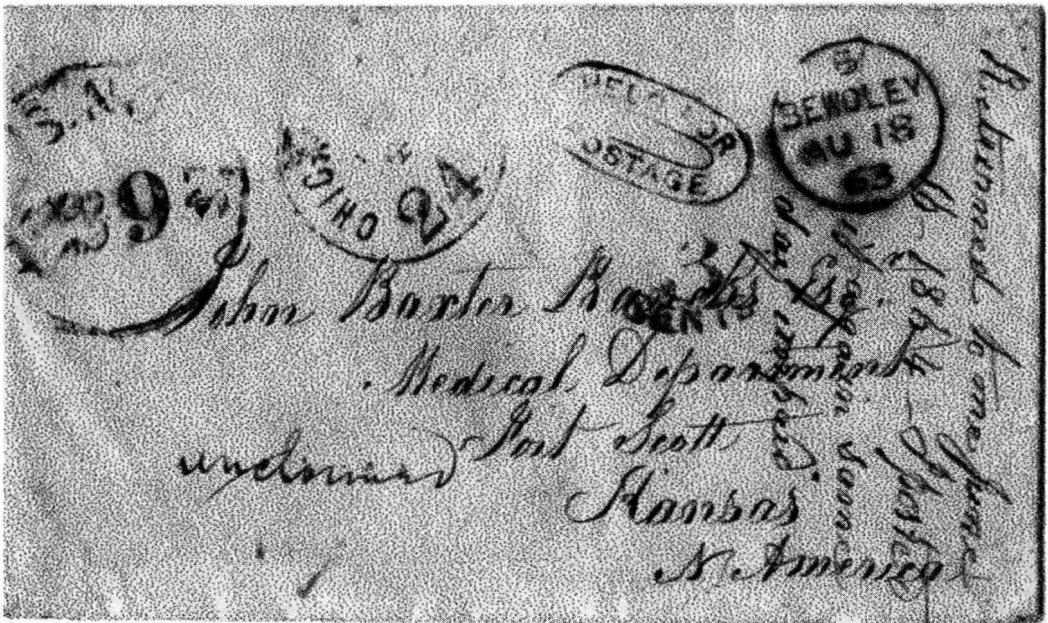 9
CHIC
24
HELD FOR
POSTAGE
BEWDLEY
AU 18
63
3
CENTS
John Baxter Esq.
Medical Department
Fort Scott
Kansas
N. America
unclaimed
Returned to me June
1864 - Posted
it again same
day